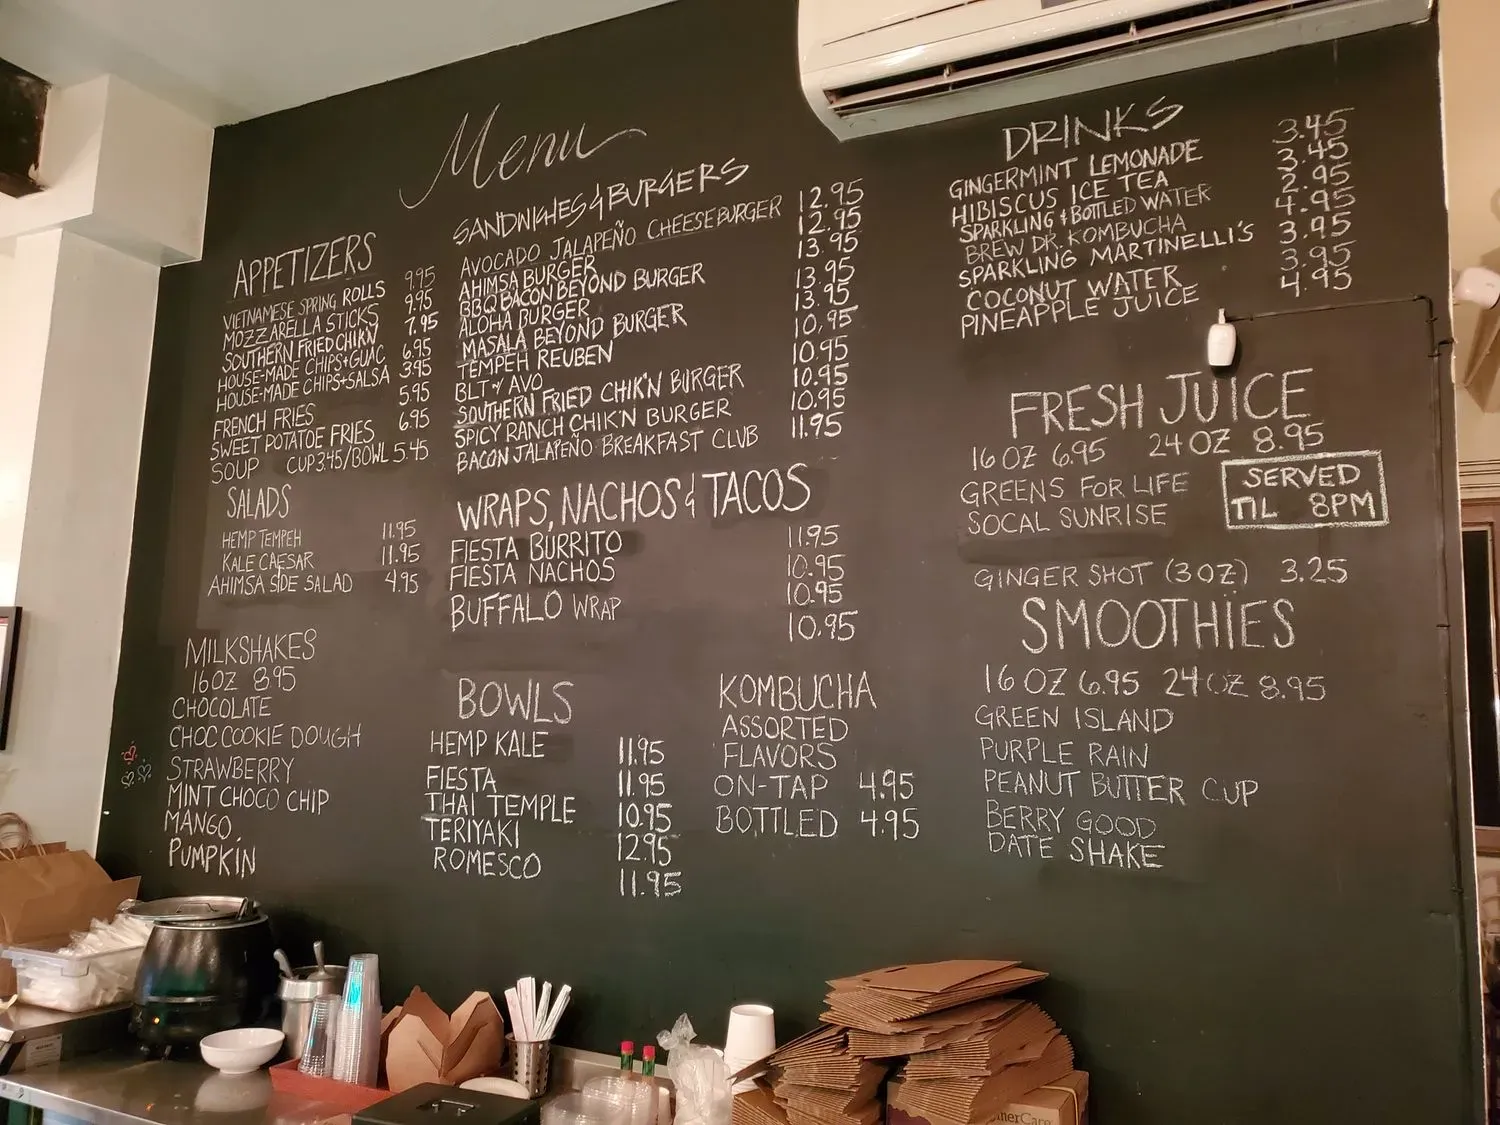 Menu
APPETIZERS
VIETNAMESE SPRING ROLLS 9.95
MOZZARELLA STICKS 9.95
SOUTHERN FRIED CHIK'N 7.95
HOUSE-MADE CHIPS+GUAC 6.95
HOUSE-MADE CHIPS+SALSA 3.95
FRENCH FRIES 5.95
SWEET POTATOE FRIES 6.95
SOUP CUP 3.45/BOWL 5.45
SALADS
HEMP TEMPEH 11.95
KALE CAESAR 11.95
AHIMSA SIDE SALAD 4.95
MILKSHAKES
16OZ 8.95
CHOCOLATE
CHOC COOKIE DOUGH
STRAWBERRY
MINT CHOCO CHIP
MANGO
PUMPKIN
SANDWICHES & BURGERS
AVOCADO JALAPEÑO CHEESEBURGER 12.95
AHIMSA BURGER 12.95
BBQ BACON BEYOND BURGER 13.95
ALOHA BURGER 13.95
MASALA BEYOND BURGER 13.95
TEMPEH REUBEN 10.95
BLT AVO 10.95
SOUTHERN FRIED CHIK'N BURGER 10.95
SPICY RANCH CHIK'N BURGER 10.95
BACON JALAPEÑO BREAKFAST CLUB 11.95
WRAPS, NACHOS & TACOS
FIESTA BURRITO 11.95
FIESTA NACHOS 10.95
BUFFALO WRAP 10.95
10.95
BOWLS
HEMP KALE 11.95
FIESTA 11.95
THAI TEMPLE 10.95
TERIYAKI 12.95
ROMESCO 11.95
KOMBUCHA
ASSORTED
FLAVORS
ON-TAP 4.95
BOTTLED 4.95
DRINKS
GINGERMINT LEMONADE 3.45
HIBISCUS ICE TEA 3.45
SPARKLING & BOTTLED WATER 2.95
BREW DR. KOMBUCHA 4.95
SPARKLING MARTINELLI'S 3.95
COCONUT WATER 3.95
PINEAPPLE JUICE 4.95
FRESH JUICE
16 OZ 6.95 24 OZ 8.95
GREENS FOR LIFE
SOCAL SUNRISE
SERVED
TIL 8PM
GINGER SHOT (3OZ) 3.25
SMOOTHIES
16 OZ 6.95 24 OZ 8.95
GREEN ISLAND
PURPLE RAIN
PEANUT BUTTER CUP
BERRY GOOD
DATE SHAKE